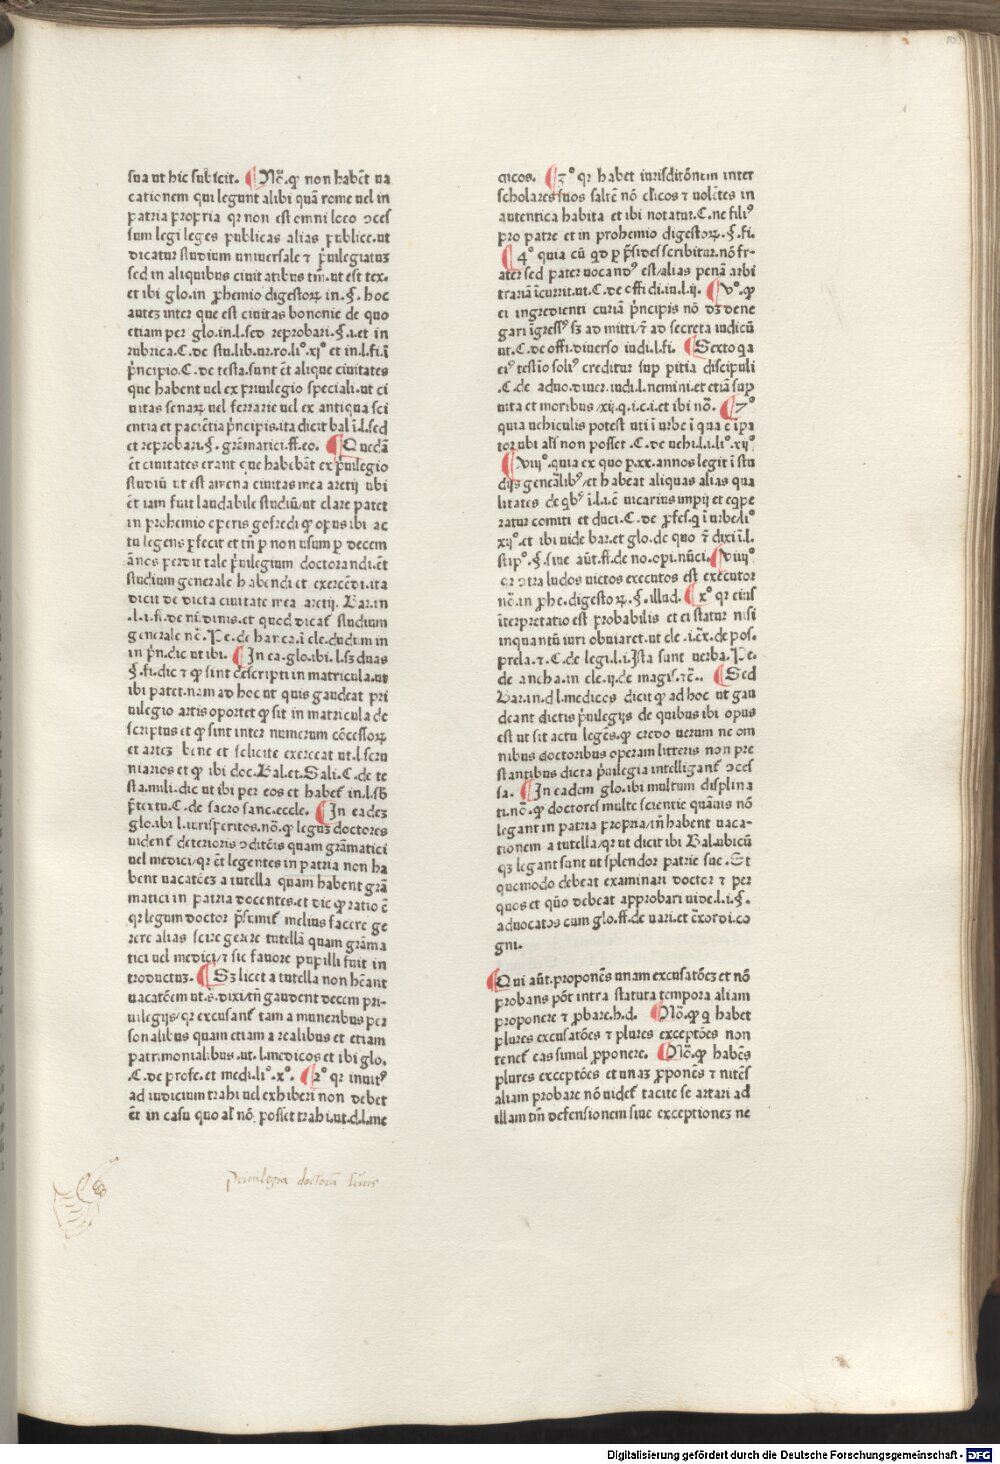 sua ut hic subicit. ¶ Nō.ꝙ non habēt ua
cationem qui legunt alibi quā rome uel in
patria propria qr non est omni loco ɔces
sum legi leges publicas alias publice.ut
dicatur studium uniuersale ⁊ p̄uilegiatuꝫ
sed in aliquibus ciuitatibus tm̄.ut est tex.
et ibi glo.in ꝓhemio digestoꝝ in.§. hoc
auteꝫ inter que est ciuitas bononie de quo
etiam per glo.in.l.sed reprobari.§.i.et in
rubrica.C.de stu.lib.ur.ro.li°.xj° et in.l.fi.ī
p̄ncipio.C.de testa.sunt ēt alique ciuitates
que habent uel ex priuilegio speciali.ut ci
uitas senaꝝ uel ferrarie uel ex antiqua sci
entia et paciētia p̄ncipis.ita dicit bal ī.l.sed
et reprobari.§. grāmatici.ff.eo. ¶ Quedā
ēt ciuitates erant que habebāt ex p̄uilegio
studiū ut est amena ciuitas mea aretij ubi
ēt iam fuit laudabile studiū/ut clare patet
in prohemio operis gofredi ꝙ opus ibi ac
tu legens ꝑfecit et tn̄ ꝑ non usum ꝑ decem
ānos perdit tale p̄uilegium doctorandi.ēt
studium generale habendi et exercēdi.ita
dicit de dicta ciuitate mea aretij. Bar.in
.l.i.ff.de nūdinis.et quod dicat᷑ studium
generale nō.Pe.de hanca.ī cle.dudum in
in p̄n.dic ut ibi. ¶ In ea.glo.ibi.l.sꝫ duas
§.fi.dic ⁊ ꝙ sint descripti in matricula.ut
ibi patet.nam ad hoc ut quis gaudeat pri
uilegio artis oportet ꝙ sit in matricula de
scriptus et ꝙ sint inter numerum cōcessoꝝ
et arteꝫ bene et solicite exerceat ut.l.seru
niarios et ꝙ ibi doc.Bal.et.Sali.C.de te
sta.mili.dic ut ibi per eos et habet᷑ in.l.sb̄
p̄textu.C.de sacro sanc.eccle. ¶ In eadeꝫ
glo.ibi l.iurisperitos.nō.ꝙ leguꝫ doctores
uident᷑ deterioris ɔditōis quam grāmatici
uel medici/qr ēt legentes in patria non ha
bent uacatōeꝫ a tutella quam habent grā
matici in patria docentes.et dic ꝙ ratio ē
qr legum doctor p̄sumit᷑ melius facere ge
rere alias scire gerere tutellā quam grāma
tici uel medici/⁊ sic fauore pupilli fuit in
troductuꝫ. ¶ Sꝫ licet a tutella non hēant
uacatōem ut.s.dixi/tn̄ gaudent decem pri-
uilegijs/qr excusant᷑ tam a muneribus per
sonalibus quam etiam a realibus et etiam
patrimonialibus.ut.l.medicos et ibi glo.
.C.de profe.et medi.li°.x°. ¶ 2° qr inuitꝰ
ad iudicium trahi uel exhiberi non debet
ēt in casu quo al̄ nō posset trahi.ut.d.l.me
dicos. ¶ 3° qr habet iurisditōnem inter
scholares suos saltē nō cl̄icos ⁊ uolētes in
autentica habita et ibi notatur.C.ne filiꝰ
pro patre et in prohemio digestoꝝ.§.fi.
¶ 4° quia cū qd ꝑ p̄sides scribitur.nō fr-
ater sed pater uocandꝰ est/alias penā arbi
trariā īcurrit.ut.C.de offi di.in.l.ij. ¶ v°.ꝙ
ei ingredienti curiā p̄ncipis nō dꝫ dene
gari īgressꝰ sꝫ admitti/⁊ ad secreta iudicū
ut.C.de offi.diuerso iudi.l.fi. ¶ Sexto qa
eiꝰ testīo soliꝰ creditur sup pitia discipuli
.C.de aduo.diuer.iudi.l.nemini.et etiā sup
uita et moribus/xij.q.i.c.i.et ibi nō. ¶ 7°
quia uehiculis potest uti ī urbe ī qua ē īpa
tor ubi al̄s non posset .C.de uehi.l.i.li°.xij°
¶ viij°.quia ex quo ꝑ.xx.annos legit ī stu
dijs genēalibꝰ/et habeat aliquas alias qua
litates de qbꝰ ī.l.i.ē uicarius impij et eqpe
ratur comiti et duci.C.de ꝓfes.q ī urbe/li°
xij°.et ibi uide bar.et glo.de quo ⁊ dixi ī.l.
stip°.§.siue aūt.ff.de no.opi.nūci. ¶ viiij°
qr ɔtra ludos uictos executos est executor
nō.in ꝓhe.digestoꝝ.§.illud. ¶ x° qr eius
īterpretatio est probabilis et ei statur nisi
inquantū iuri obuiaret.ut cle.i.c̄x.de pos.
prela.⁊.C.de legi.l.i.Ista sunt uerba.Pe.
de ancha.in cle.ij.de magis.⁊c̄.. ¶ Sed
Bar.in.d l.medicos dicit ꝙ ad hoc ut gau
deant dictis p̄uilegijs de quibus ibi opus
est ut sit actu leges.ꝙ credo uerum ne om
nibus doctoribus operam litteris non pre
stantibus dicta p̄uilegia intelligant᷑ ɔces
sa. ¶ In eadem glo.ibi multum displina
ti.nō.ꝙ doctores multe scientie quāuis nō
legant in patria propria/tn̄ habent uaca-
tionem a tutella/qr ut dicit ibi Bal.ubicū
qꝫ legant sunt ut splendor patrie sue.Et
quomodo debeat examinari doctor ⁊ per
quos et quō debeat approbari uide.l.i.§.
aduocatos cum glo.ff.de uari.et ēxordi.co
gni.
¶ Qui aūt.proponēs unam excusatōeꝫ et nō
probans pōt intra statuta tempora aliam
proponere ⁊ ꝓbare.h.d. ¶ Nō.ꝙ q habet
plures excusatōes ⁊ plures exceptōes non
tenet᷑ eas simul ꝓponere. ¶ Nō.ꝙ habēs
plures exceptōes et unaꝫ ꝓponēs ⁊ nitēs
aliam probare nō uidet᷑ tacite se artari ad
illam tm̄ defensionem siue exceptioneꝫ ne
Priuilegia doctorū
Digitalisierung gefördert durch die Deutsche Forschungsgemeinschaft - DFG